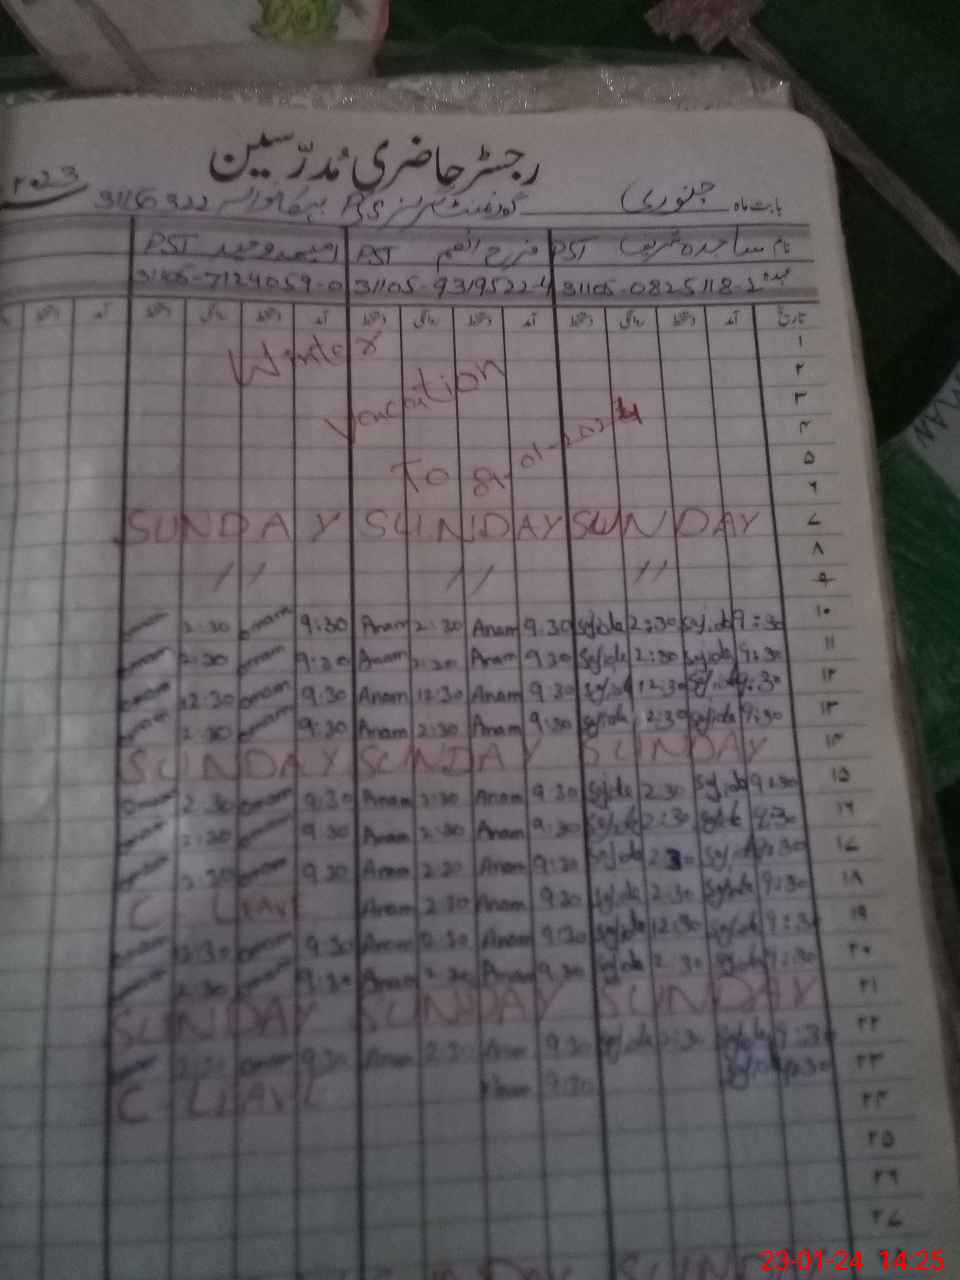 رجسٹر حاضری مُدرّسین
بابت ماہ جنوری گورنمنٹ گرلز P/S 31156322 2023
نام ساجدہ شریف PST فرح انعم PST امیمہ وحید PST
عہدہ 31105-0825118-2 31105-9319522-4 31106-7124059-0
تاریخ آمد دستخط روانگی دستخط آمد دستخط روانگی دستخط آمد دستخط روانگی دستخط آمد دستخط
۱ Winter
۲ Vacation
۳
۴ To 9-01-2024
۵
۶
۷ SUNDAY SUNDAY SUNDAY
۸ // // //
۹
۱۰ 2:30 9:30 Anam 2:30 Anam 9:30 Sajida 2:30 Sajida 9:30
۱۱ 2:30 9:30 Anam 2:30 Anam 9:30 Sajida 2:30 Sajida 9:30
۱۲ 12:30 9:30 Anam 12:30 Anam 9:30 Sajida 12:30 Sajida 9:30
۱۳ 2:30 9:30 Anam 2:30 Anam 9:30 Sajida 2:30 Sajida 9:30
۱۴ SUNDAY SUNDAY SUNDAY
۱۵ 2:30 9:30 Anam 2:30 Anam 9:30 Sajida 2:30 Sajida 9:30
۱۶ 2:30 9:30 Anam 2:30 Anam 9:30 Sajida 2:30 Sajida 9:30
۱۷ 2:30 9:30 Anam 2:30 Anam 9:30 Sajida 2:30 Sajida 9:30
۱۸ C LEAVE Anam 2:30 Anam 9:30 Sajida 2:30 Sajida 9:30
۱۹ 2:30 9:30 Anam 2:30 Anam 9:30 Sajida 12:30 Sajida 9:30
۲۰ 2:30 9:30 Anam 2:30 Anam 9:30 Sajida 2:30 Sajida 9:30
۲۱ SUNDAY SUNDAY SUNDAY
۲۲ 2:30 9:30 Anam 2:30 Anam 9:30 Sajida 2:30 Sajida 9:30
۲۳ C LEAVE Anam 9:30 Sajida 9:30
۲۴
۲۵
۲۶
۲۷
SUN
23-01-24 14:25